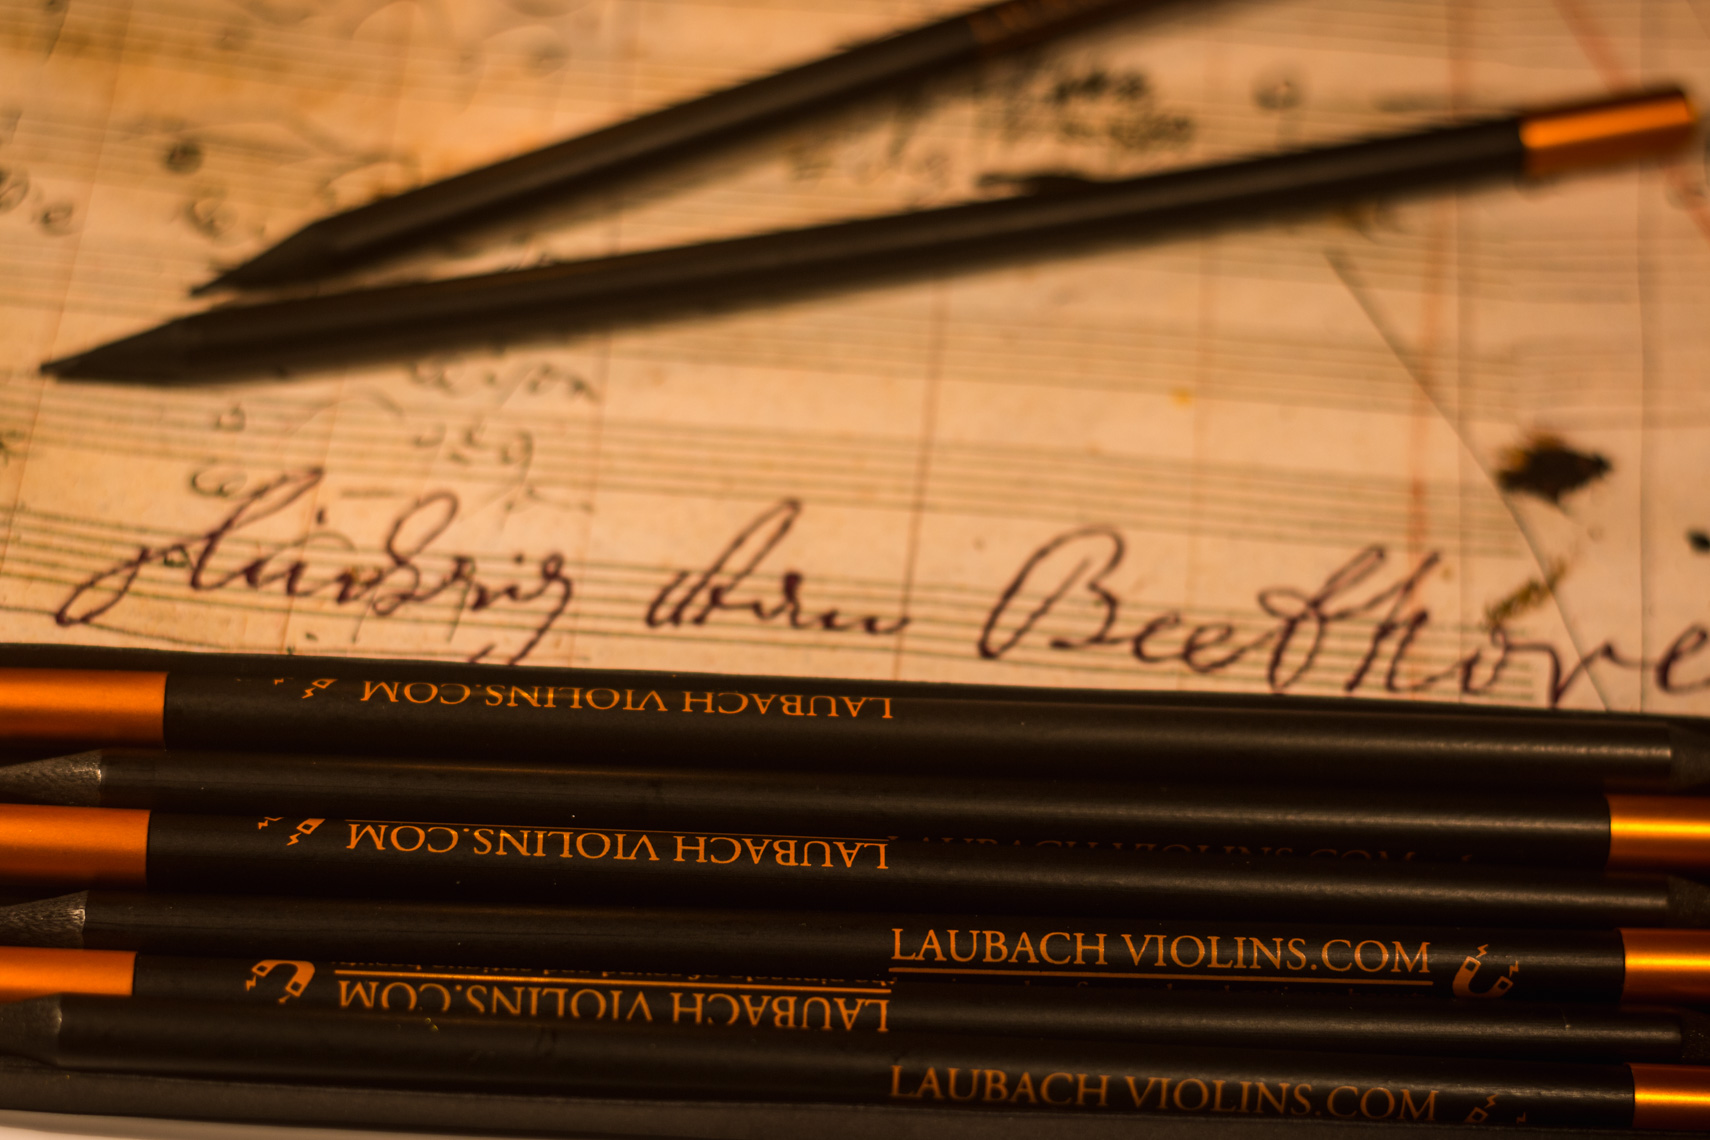 Ludwig van Beethove
LAUBACH VIOLINS.COM
LAUBACH VIOLINS.COM
LAUBACH VIOLINS.COM
LAUBACH VIOLINS.COM
LAUBACH VIOLINS.COM